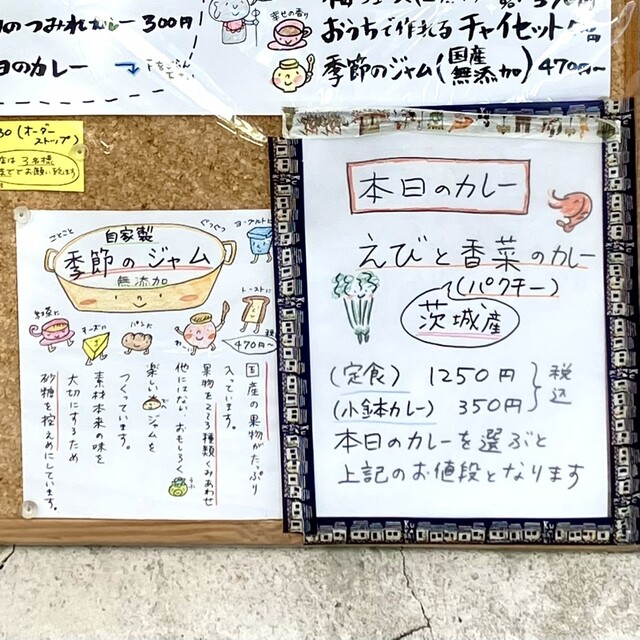 のつみれカレー 300円
日のカレー
幸せの香り
おうちで作れる チャイセット
季節のジャム(国産 無添加) 470円〜
30(オーダー
ストップ)
店は3名様
本日のカレー
えびと香菜のカレー
(パクチー)
茨城産
(定食) 1250円
(小鉢カレー) 350円
税込
本日のカレーを選ぶと
上記のお値段となります
ことこと
ぐつぐつ
自家製
季節のジャム
無添加
ヨーグルトに
トーストに
お茶に
チーズに
パンに
税込
470円〜
国産の果物がたっぷり
入っています。
果物を2〜3種類くみあわせ
他にはない、おもしろく
楽しいジャムを
つくっています。
素材本来の味を
大切にするため
砂糖を控えめにしています。